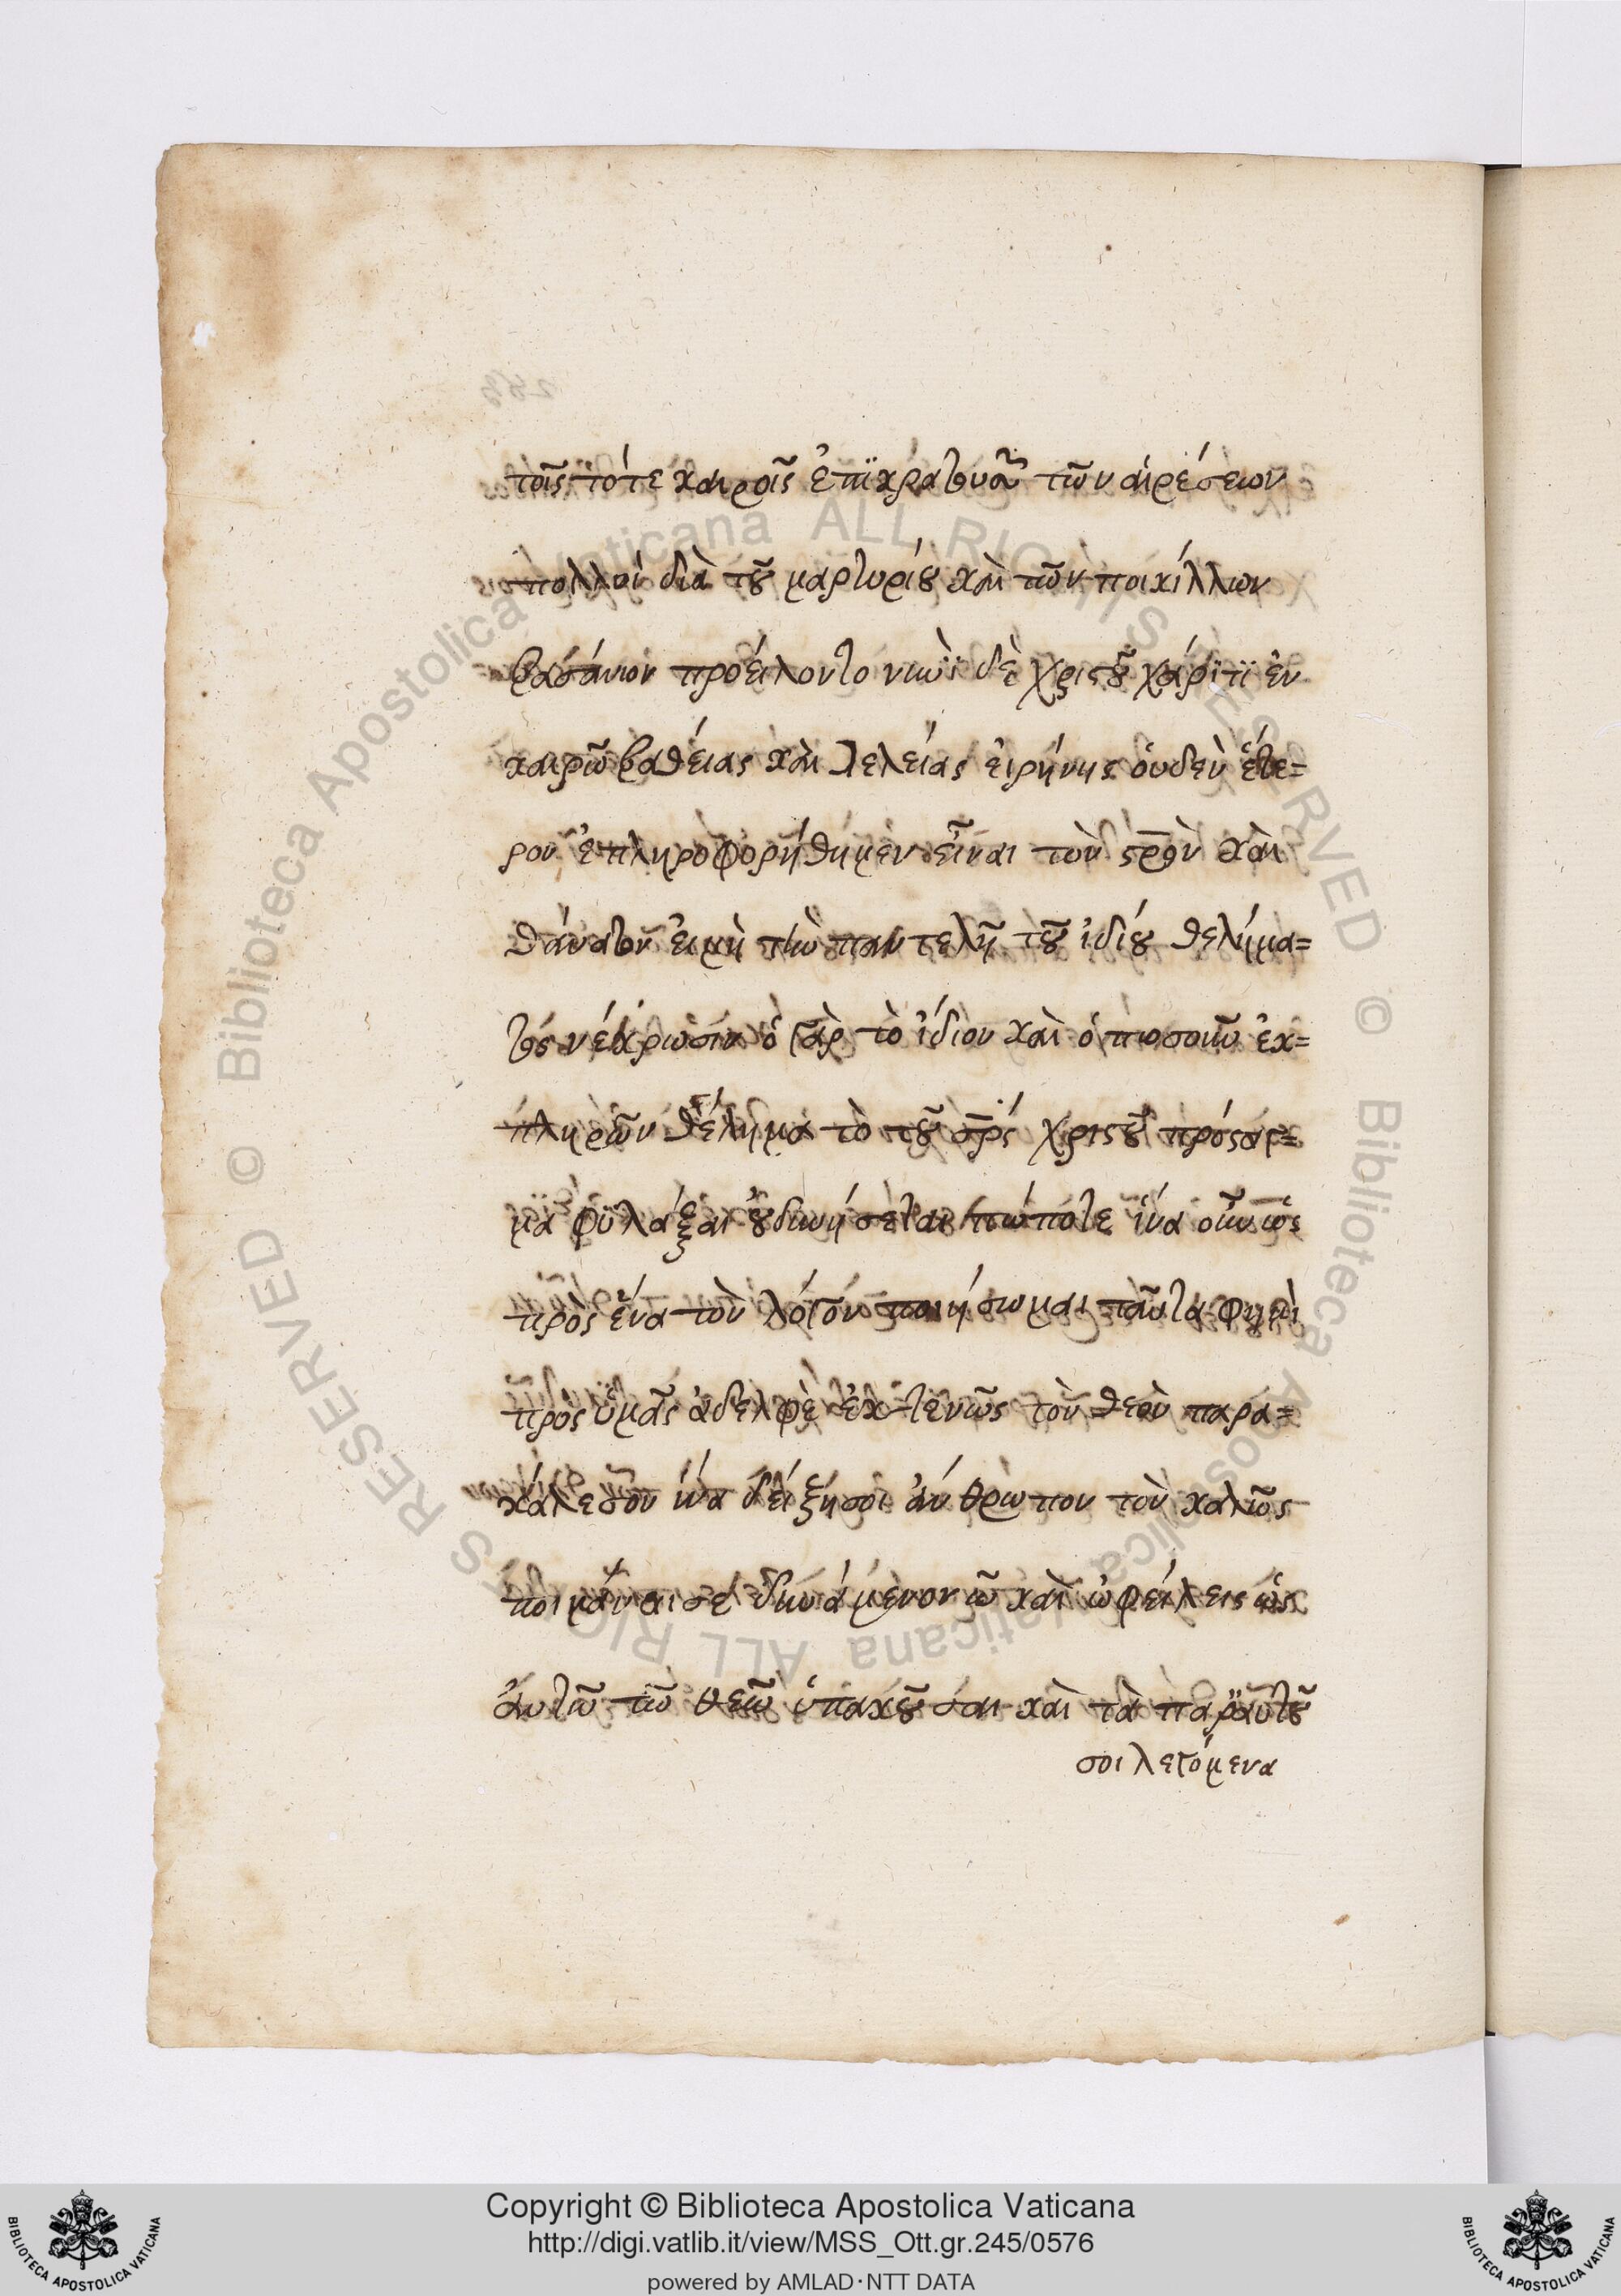 τοῖς τότε καιροῖς ἐπϊκρατουσῶν τῶν αἱρέσεων
πολλοί διὰ τοῦ μαρτυρίου καὶ τῶν ποικίλλων
βασάνων προέιλοντο νῦνϊ δὲ χριστοῦ χάρϊτϊ ἐν
καιρῶ βαθέιας καὶ τελείας ἐιρήνης ὀυδὲν ἕτε=
ρον ἐπληροφορήθημεν εἶναι τὸν στρον καὶ
θάνατον ἐιμὴ τὴν παντελῆ τοῦ ἰδίου θελήμα=
τος νέκρωσιν ὁ γὰρ τὸ ἰδιον καὶ ὁπωσοῦν ἐκ=
πληρῶν θέλημα τὸ τοῦ σρς χριστοῦ πρόσαγ=
μα φϋλάξαι οὐ δυνήσεται πώποτε ἵνα οὖν ὡς
πρὸς ἕνα τὸν λόγον ποιήσωμαι ταῦτα φημὶ
πρὸς ὑμᾶς ἀδελφὲ ἐκτενῶς τὸν θεὸν παρα=
κάλεσον ἵνα δέιξη σοι ἄνθρωπον τὸν καλῶς
ποιμᾶναι σε δυνάμενον ὧ καὶ ὠφέιλεις ὡς
ἀυτῶ τῶ θεῶ ὑπακοῦσαι καὶ τὰ παρ ἀυτοῦ
σοι λεγόμενα
Copyright © Biblioteca Apostolica Vaticana
http://digi.vatlib.it/view/MSS_Ott.gr.245/0576
powered by AMLAD·NTT DATA